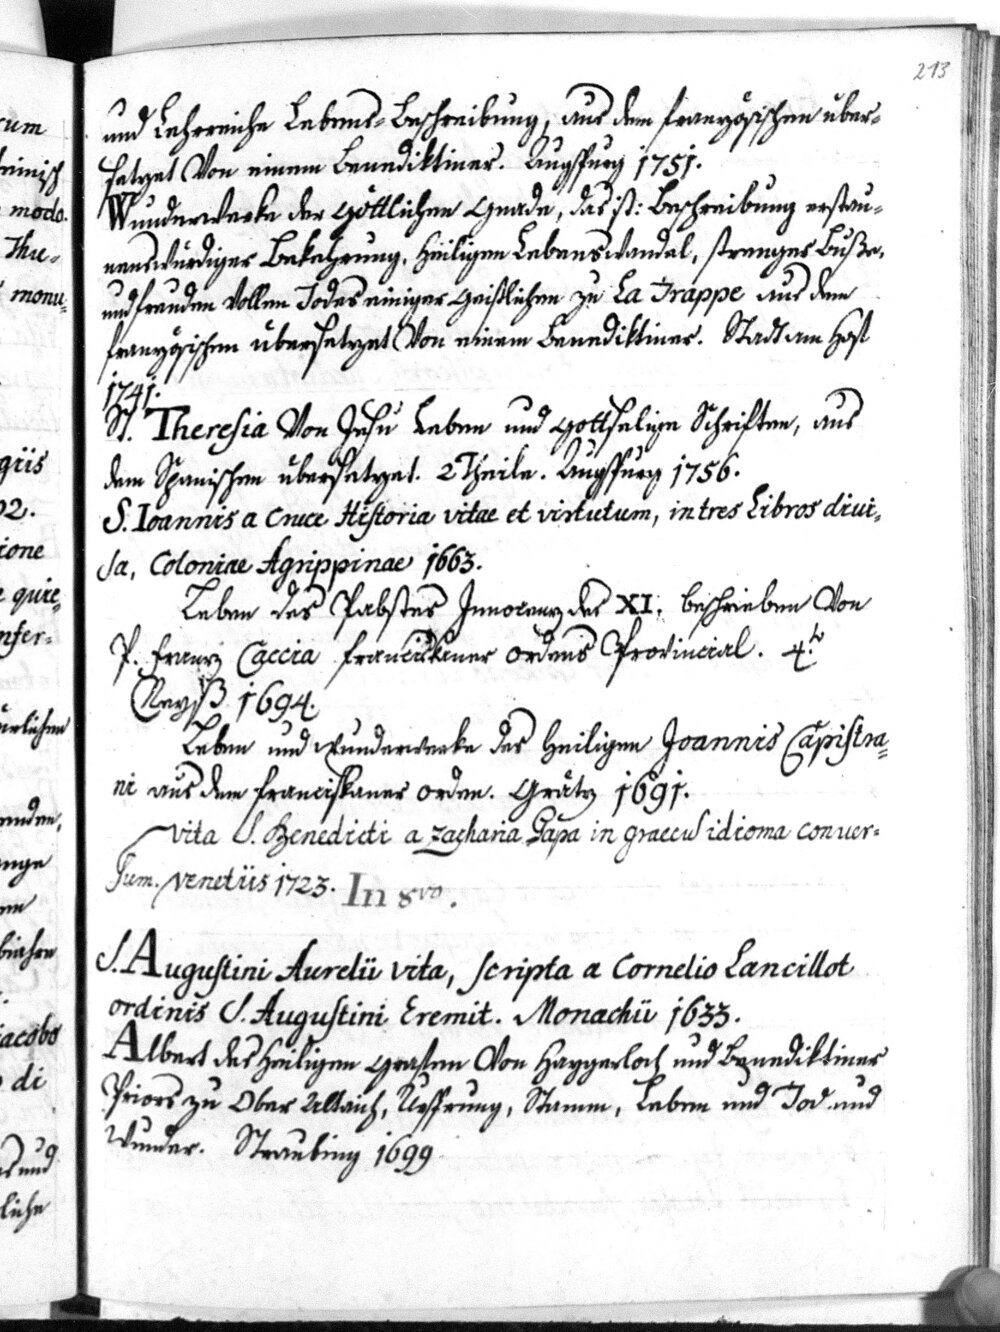 213
und Lehrreiche Lebens-Beschreibung, aus dem französischen über-
setzet Von einem Benediktiner. Augspurg 1751.
Wunderwerke der Göttlichen Gnade, das ist: Beschreibung erstau-
nenswürdiger Bekehrung, Heiligen Lebenswandel, strenger Buße,
und freuden vollen Todes einiger Geistlichen zu La Trappe aus dem
französischen übersetzet Von einem Benediktiner. Stadt am Hof
1741.
St. Theresia Von Jesu Leben und Gottselige Schriften, aus
dem Spanischen übersetzet. 2 Theile. Augspurg 1756.
S. Ioannis a Cruce Historia vitae et virtutum, in tres Libros divi-
sa, Coloniae Agrippinae 1663.
Leben des Pabstes Innocenz des XI. beschrieben Von
P. Franz Caccia franciskaner ordens Provincial. 4.to
Neyß 1694.
Leben und wunderwerke des Heiligen Joannis Capistra-
ni aus dem franciskaner orden. Grätz 1691.
vita S. Benedicti a zacharia Papa in graecu idioma conver-
sum. venetiis 1723. In 8vo.
S. Augustini Aurelii vita, scripta a Cornelio Lancillot
ordinis S. Augustini Eremit. Monachii 1633.
Albert des Heiligen Grafen Von Haygerloch und Benediktiner
Priors zu Ober Altaich, Ursprung, Stamm, Leben und Tod und
Wunder. Straubing 1699